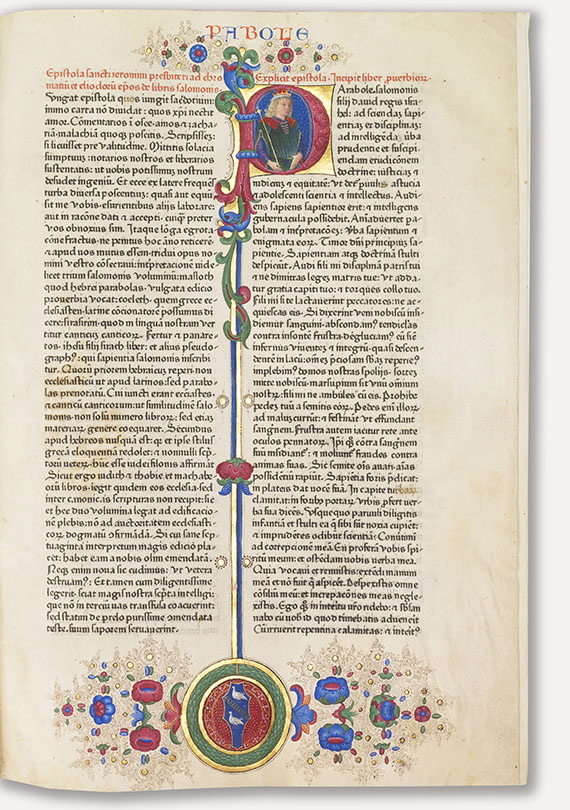 PABOLE
Epistola sancti ieronimi presbiteri ad chro
matiū et eliodorū epos de libris salomonis.
Iungat epistola quos iungit sacdotium:
immo carta nō diuidat: quos xpi nectit
amor. Comētarios ī osee. amos & zacha
riā. malachiā quoqȝ poscitis. Scripsissē:
si licuisset pre valitudine. Mittitis solacia
sumptuuȝ: notarios nostros et librarios
sustentatis: ut vobis potissimuȝ nostrum
desudet ingeniū. Et ecce ex latere frequēs
turba diuersa poscentiuȝ: quasi aut equū
sit me vobis esurientibus aliis laborare:
aut in racōne dati & accepti. cuiqȝ preter
vos obnoxius sim. Itaqȝ lōga egrotati
cōne fractus. ne penitus hoc āno reticerē.
& apud vos mutus essem. tridui opus no
mini vestro cōsecraui: īnterpretacionē vide
licet trium salomonis voluminū: masloth
quod hebrei parabolas. vulgata edicio
prouerbia vocat: coeleth. quem grece ec
clesiasten. latine cōcionatorē possumus di
cere: sirasirim. quod in linguā nostram ver
titur canticū canticoꝝ. Fertur & panare
tos. ihesu filii sirach liber: et alius pseudo
graphꝰ: qui sapientia salomonis inscribi
tur. Quoꝝ priorem hebraicuȝ reperi. non
ecclesiasticū ut apud latinos: sed parabo
las prenotatū. Cui iuncti erant ecclīastes.
& canticū canticorum: ut similitudinē salo
monis. non solū numero libroꝝ: sed etiā
materiaꝝ genere coequaret. Secundus
apud hebreos nusquā est: quia et ipse stilus
grecā eloquentiā redolet: & nonnulli scp
toꝝ veteꝝ. hūc esse iudei filonis affirmāt.
Sicut ergo iudith & thobie et machabe
oꝝ libros. legit quidem eos ecclesia. sed
inter canonicas scripturas non recipit: sic
et hec duo volumina legat ad edificacio
nē plebis: nō ad auctoritatem ecclesiasti
coꝝ dogmatū cōfirmandā. Si cui sane sep
tuaginta interpretum magis edicio pla
cet: habet eam a nobis olim emendatā.
Neqȝ enim noua sic cudimus: ut vetera
destruamꝰ. Et tamen cum diligentissime
legerit. sciat magis nostra scpta intelligi:
que nō in tercium vas transfusa coacuerint:
sed statim de prelo purissime cōmendata
teste. suum saporem seruauerint.
Explicit epistola. Incipit liber ꝓuerbioꝝ.
Parabole salomonis
filii dauid regis isra
hel: ad sciendaȝ sapi
entiaȝ et disciplinaȝ:
ad intelligēda ūba
prudentie et suscipi
endam eruditionem
doctrine: iusticiaȝ &
iudiciuȝ & equitatē: ut detur paruulis astucia
& adolescenti scientia et intellectus. Audi
ens sapiens sapientior erit: & intelligens
gubernacula possidebit. Animaduertet pa
bolam & interpretacōȝ: ūba sapientum &
enigmata eoꝝ. Timor dni principium sa
pientie. Sapientiam atqȝ doctrinā stulti
despiciūt. Audi fili mi disciplinā patris tui
& ne dimittas legeȝ matris tue: ut adda
tur gratia capiti tuo: & torques collo tuo.
Fili mi si te lactauerint peccatores: ne ac
quiescas eis. Si dixerint veni nobiscū insi
diemur sanguini. abscondamꝰ tendiclas
contra insontē frustra: deglutiamꝰ eū sic
infernus viuenteȝ & integrū. quasi descen
dentē in lacū: omēȝ pciosam sbāȝ reperieꝰ
implebimꝰ domos nostras spoliis. sortem
mitte nobiscū. marsupium sit vnū omnium
nostrum: fili mi ne ambules cū eis. Prohibe
pedeȝ tuū a semitis eoꝝ. Pedes enī illoꝝ
ad malū currūt: & festināt ut effundant
sangnēȝ. Frustra autem iacitur rete ante
oculos pennatoꝝ. Ipi qȝ cōtra sangnēȝ
suū insidiant: & moliunt fraudes contra
animas suas. Sic semite oīs auari. aīas
possidentiū rapiūt. Sapientia foris p̄dicat:
in plateis dat vocē suā. In capite turbaꝝ
clamitat: in foribus portaꝝ vrbis ꝓfert ver
ba sua dicēs. Usquequo paruuli diligitis
infantiā et stulti ea qȝ sibi sūt noxia cupiēt:
& imprudētes odibūt scientiā: Cōuertimī
ad correptionē meā. En proferā vobis spi
ritū meum: et ostēdam vobis uerba mea.
Quia vocaui et rennuistis: extēdi manum
meā et nō fuit qui aspiceret. Despexistis omne
cōsiliū meū: et increpacōnes meas negle
xistis. Ego quoqȝ in interitu vrō ridebo: & sbsan
nabo cū uobis id quod timebatis aduenerit
Cū irruerit repentina calamitas: & interitꝰ